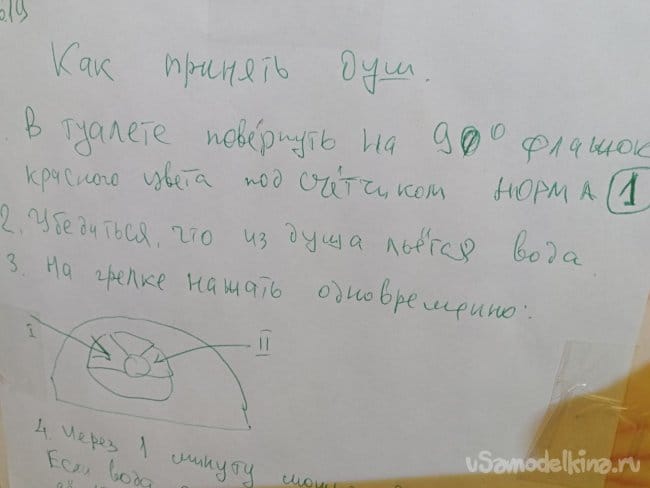 Как принять душ.
В туалете повернуть на 90° флажок
красного цвета под счётчиком НОРМА 1
2. Убедиться, что из душа льётся вода.
3. На грелке нажать одновременно:
I
II
4. Через 1 минуту
Если вода
uSamodelkina.ru